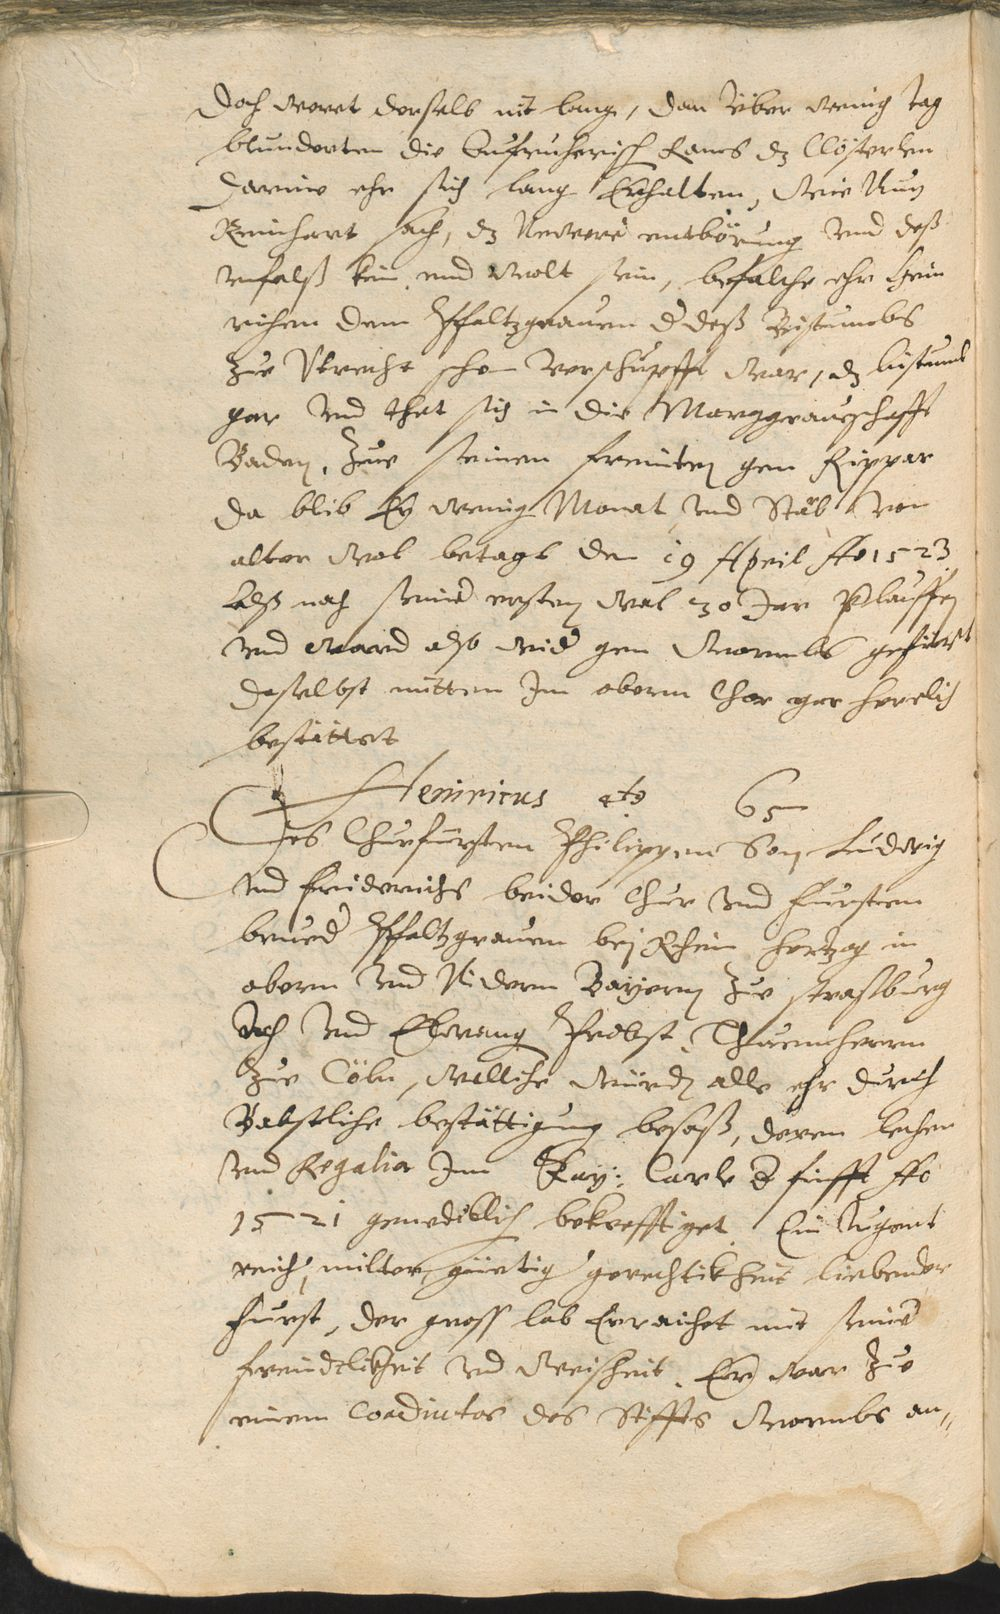 Doch weret derselb nit lang, dan über wenig tag
blunderten die Aufruherisch Baurs dz Clösterlen
Darine ehr sich lang Erhalten, Wie Nun
Reinhart sach, dz Newere entbörung vnd deß
vnfalß kein end wolt sein, befalche ehr Hein
richen dem Pfaltzgrauen d deß Bistumbs
Zue Vtrecht scho verschupfft war, dz bistumb
gar vnd thet sich in die Marggrauschafft
Baden, Zue seinen freinten gen Rippar
da blib Er wenig Monat vnd Starb von
alter wol betagt den 19 April Ao 1523
Alß nach seiner ersten wal 30 Jar Verlauffen
vnd ward also wider gen Wormbs gefüert
daselbst mitten Jm obern Chor gar herrlich
bestättet
Henricus 4to 65
Des Churfürsten Philippen Son Ludwig
vnd friderichs beider Chur vnd Fursten
brueder Pfaltzgrauen bej Rhein Hertzog in
obern vnd Nidern Bayern Zue Straßburg
vnd Elwang Probst, Thumherrn
Zue Cöln, welliche würden alle ehr durch
Babstliche bestättigung besaß, deren lechen
vnd Regalia Jm Kay: Carle d fünfft Ao
1521 genediklich bekrefftiget. Ein tugent
reich, milter, güetig gerechtikheit liebender
Furst, der gross lob Erraichet mit seiner
freindtlikheit vnd Weisheit, Er war Zue
einem Coadiutor des Stiffts Wormbs an„